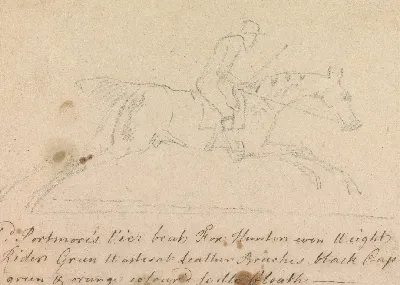 Ld. Portmore's beat Fox Hunter even Weight
Rider Green Wastcoat leather Breaches black Cap
green & orange colourd saddle Cloath —